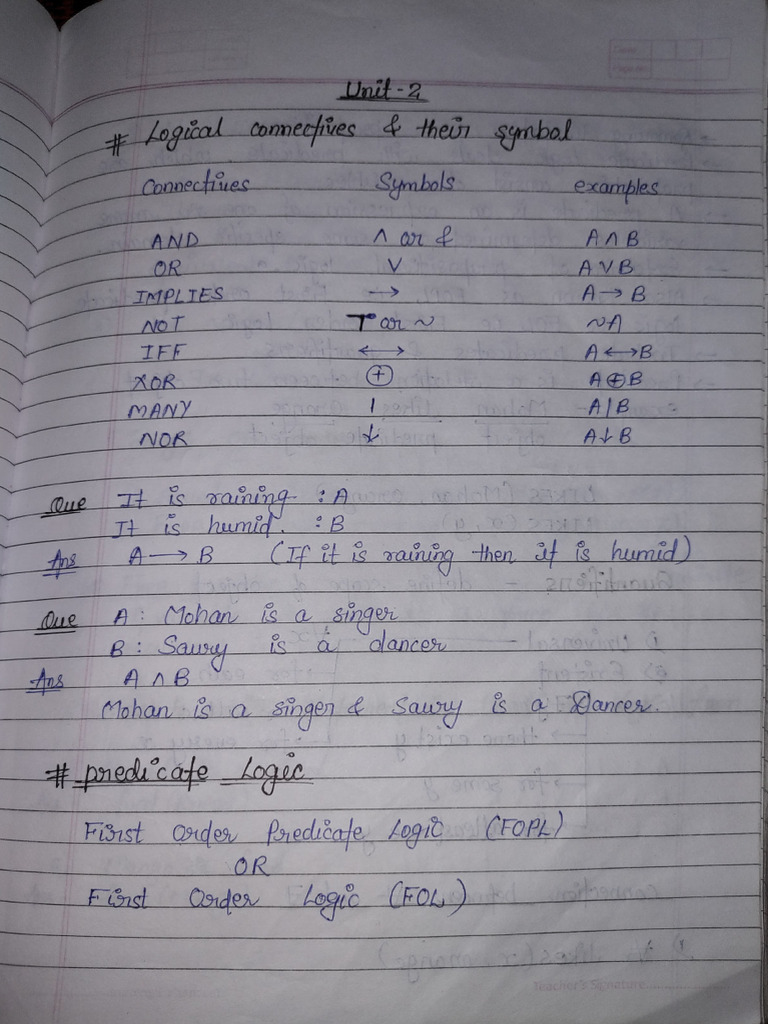 Unit-2
# Logical connectives & their symbol
Connectives Symbols examples
AND ∧ or & A∧B
OR ∨ A∨B
IMPLIES → A→B
NOT ¬ or ~ ~A
IFF ↔ A↔B
XOR ⊕ A⊕B
MANY | A|B
NOR ↓ A↓B
Que It is raining : A
It is humid. : B
Ans A → B (If it is raining then it is humid)
Que A : Mohan is a singer
B : Saury is a dancer
Ans A ∧ B
Mohan is a singer & Saury is a Dancer.
# predicate Logic
First Order Predicate Logic (FOPL)
OR
First Order Logic (FOL)
Teacher's Signature